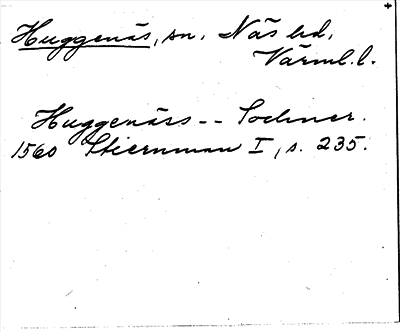 Huggenäs, sn. Näs hd.
Värml. l.
Huggenäss -- Sochner.
1560 Stiernman I, s. 235.